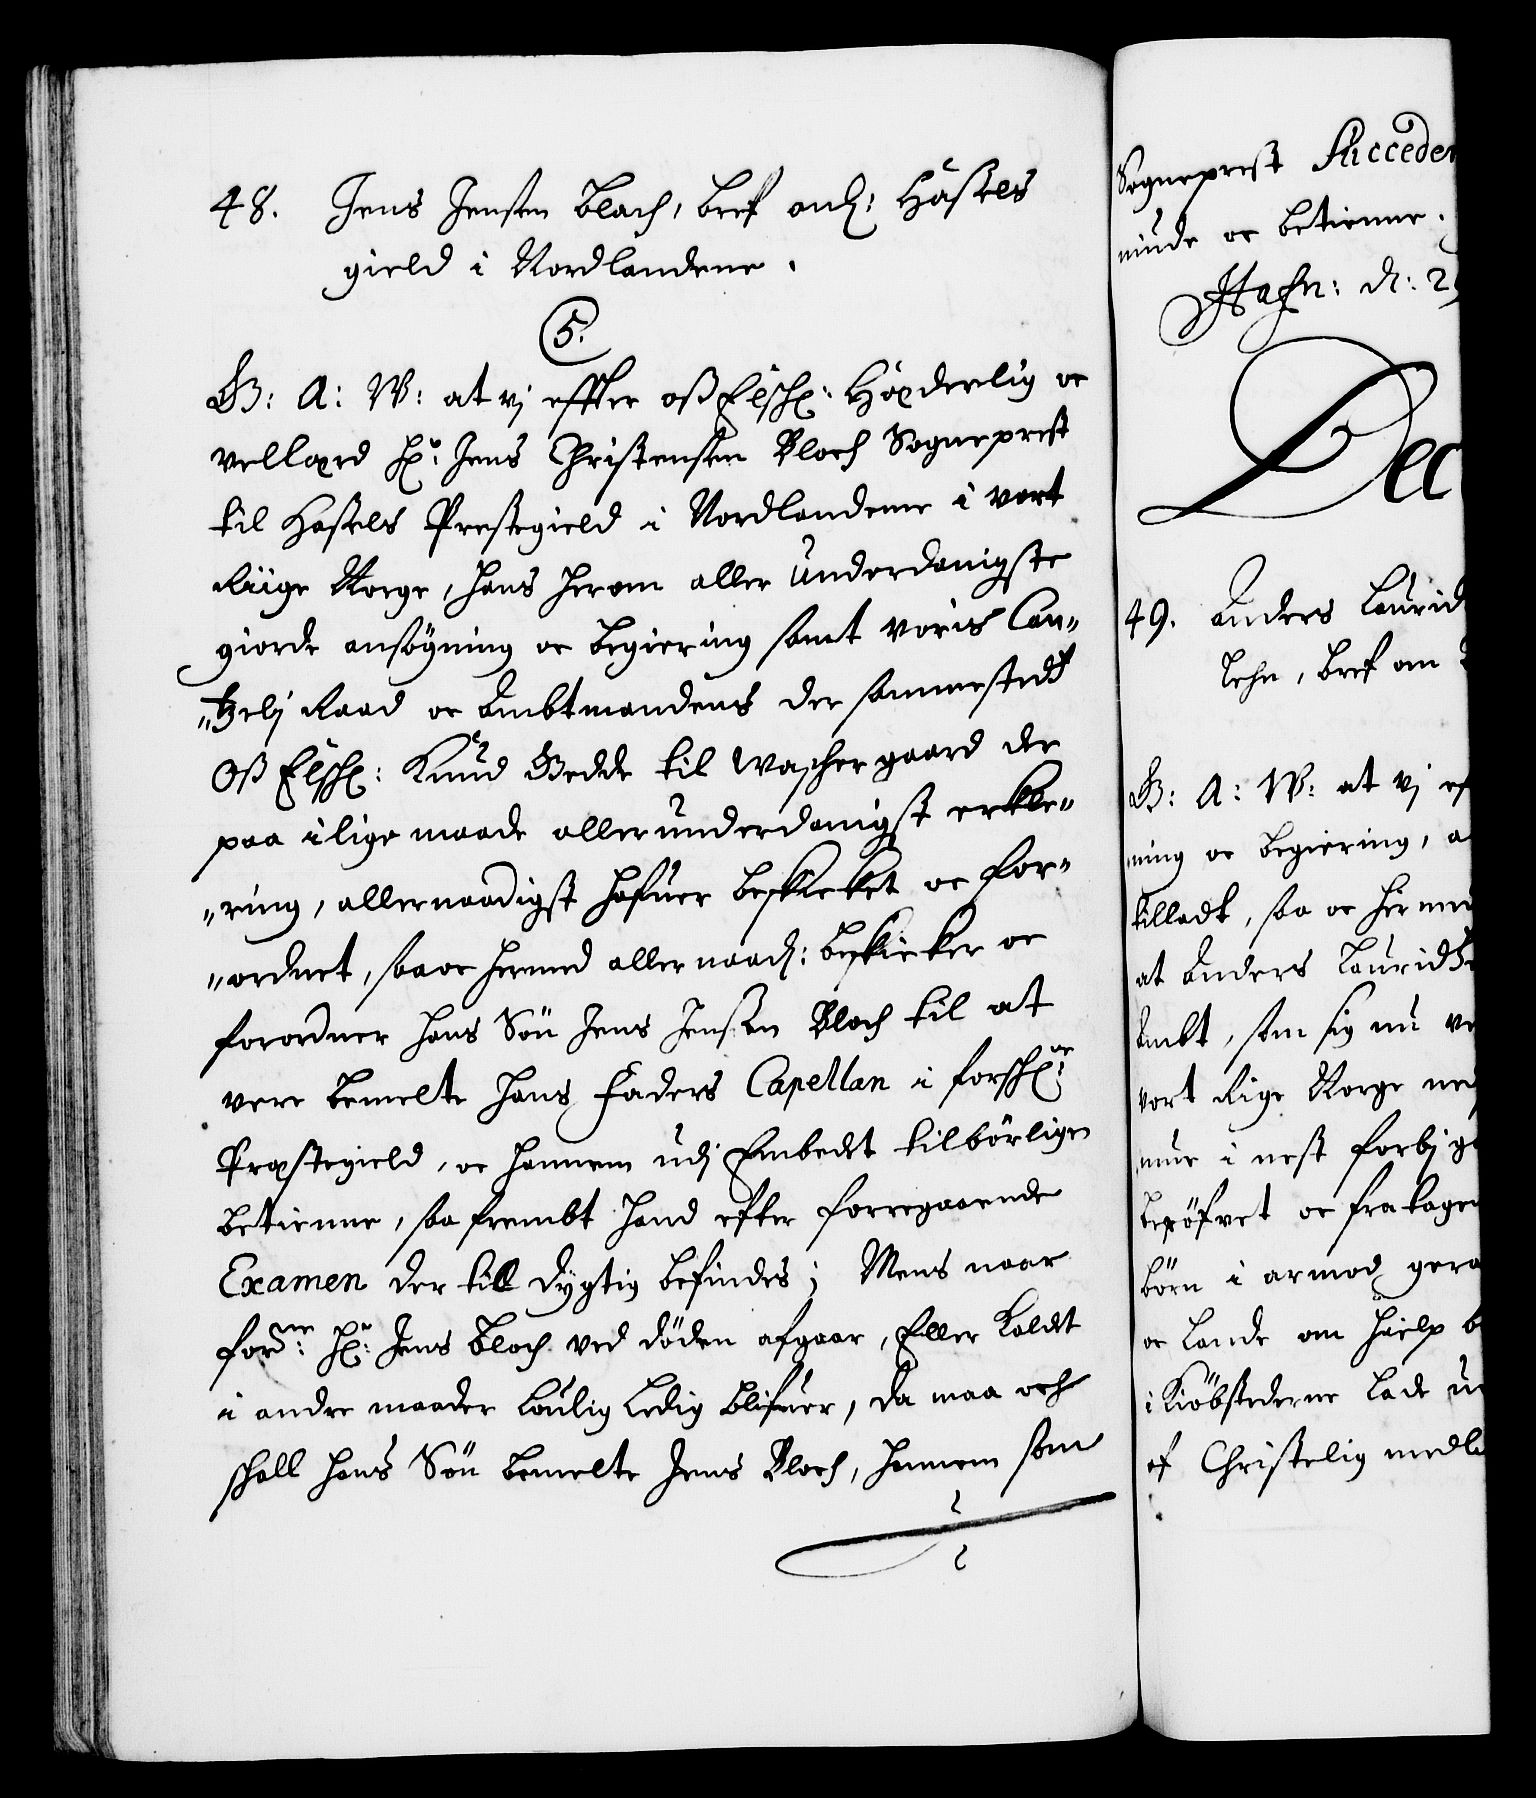 48. Jens Jensen Bloch, bref anl: Hassels
gield i Nordlandene.
5.
G: A: W: at vj effter oß Elschl: Hæderlig oc
vellærd Hr: Jens Christensen Bloch Sogneprest
til Hassels Prestegield i Nordlandene i vort
Riige Norge, hans herom aller underdanigste
giorde ansögning oc begiering samt voris Can„
„tzelj Raad oc Ambtmandens der sammestedt
Oß Elschl: Knud Gedde til Wascher gaard der
paa i lige maade allerunderdanigst erkle„
„ring, allernaadigst hafuer beskicket oc for„
„ordnet, saa oc hermed aller naadl: beskicker oc
forordner hans Sön Jens Jensen Bloch til at
vere bemelte hans Faders Capellan i forschrne
Præstegield, oc hannem udj Embedet tilbörligen
betienne, saa frembt hand efter forregaaende
Examen der till dygtig befindes; Mens naar
fordne: Hr: Jens Bloch ved döden afgaar, Eller Kaldet
i andre maader loulig ledig blifuer, da maa och
schall hans Sön bemelte Jens Bloch, hannem som
Sogneprest Succeder
minde oc betienne.
Hafn: d: 2
Dec
49. Anders Laurid
Lehn, bref om
G: A: W: at vj ef
ning oc begiering, a
tilladt, saa oc hermed
at Anders Lauridtz
Ambt, som sig nu ve
vort Rige Norge ned
mur i nest forbj ga
beröfvet oc fratagen
börn i armod gera
oc lande om hielp b
i Kiöbstederne lade u
af Christelig medli